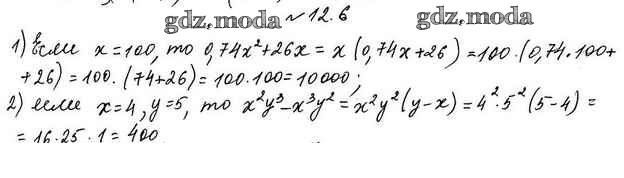 gdz.moda № 12.6 gdz.moda
1) Если x=100, то 0,74x²+26x = x(0,74x+26) = 100·(0,74·100+
+26) = 100·(74+26) = 100·100 = 10000;
2) если x=4, y=5, то x²y³-x³y² = x²y²(y-x) = 4²·5²(5-4) =
= 16·25·1 = 400